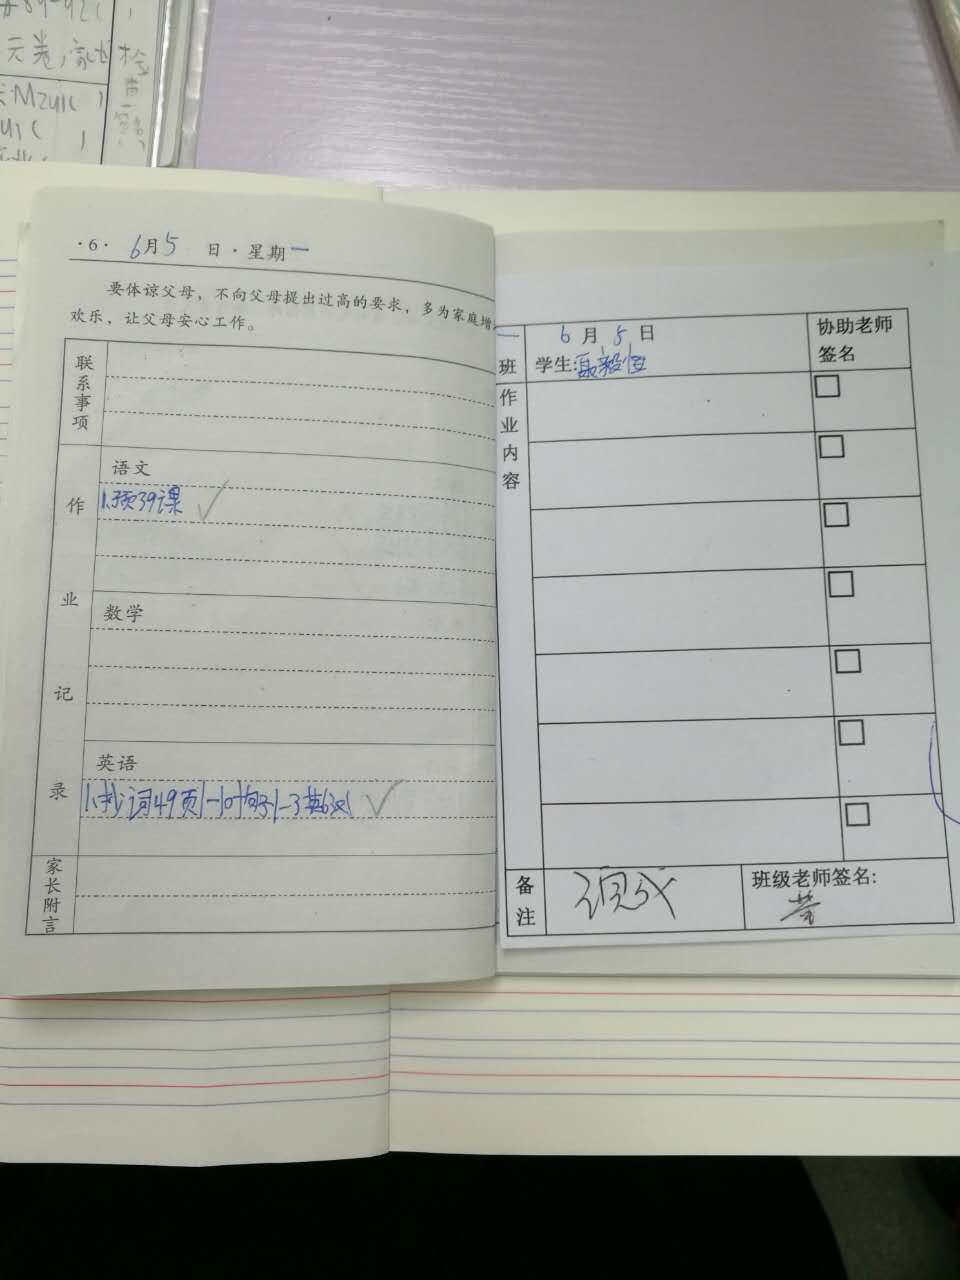 ·6· 6月5 日·星期一
要体谅父母，不向父母提出过高的要求，多为家庭增
欢乐，让父母安心工作。
联系事项
作业记录
语文
1.预39课
数学
英语
1.抄词49页1-10 句子1-3 英63汉1
家长附言
一班
6月5日
学生:
协助老师
签名
作业内容
备注
班级老师签名:
元卷,